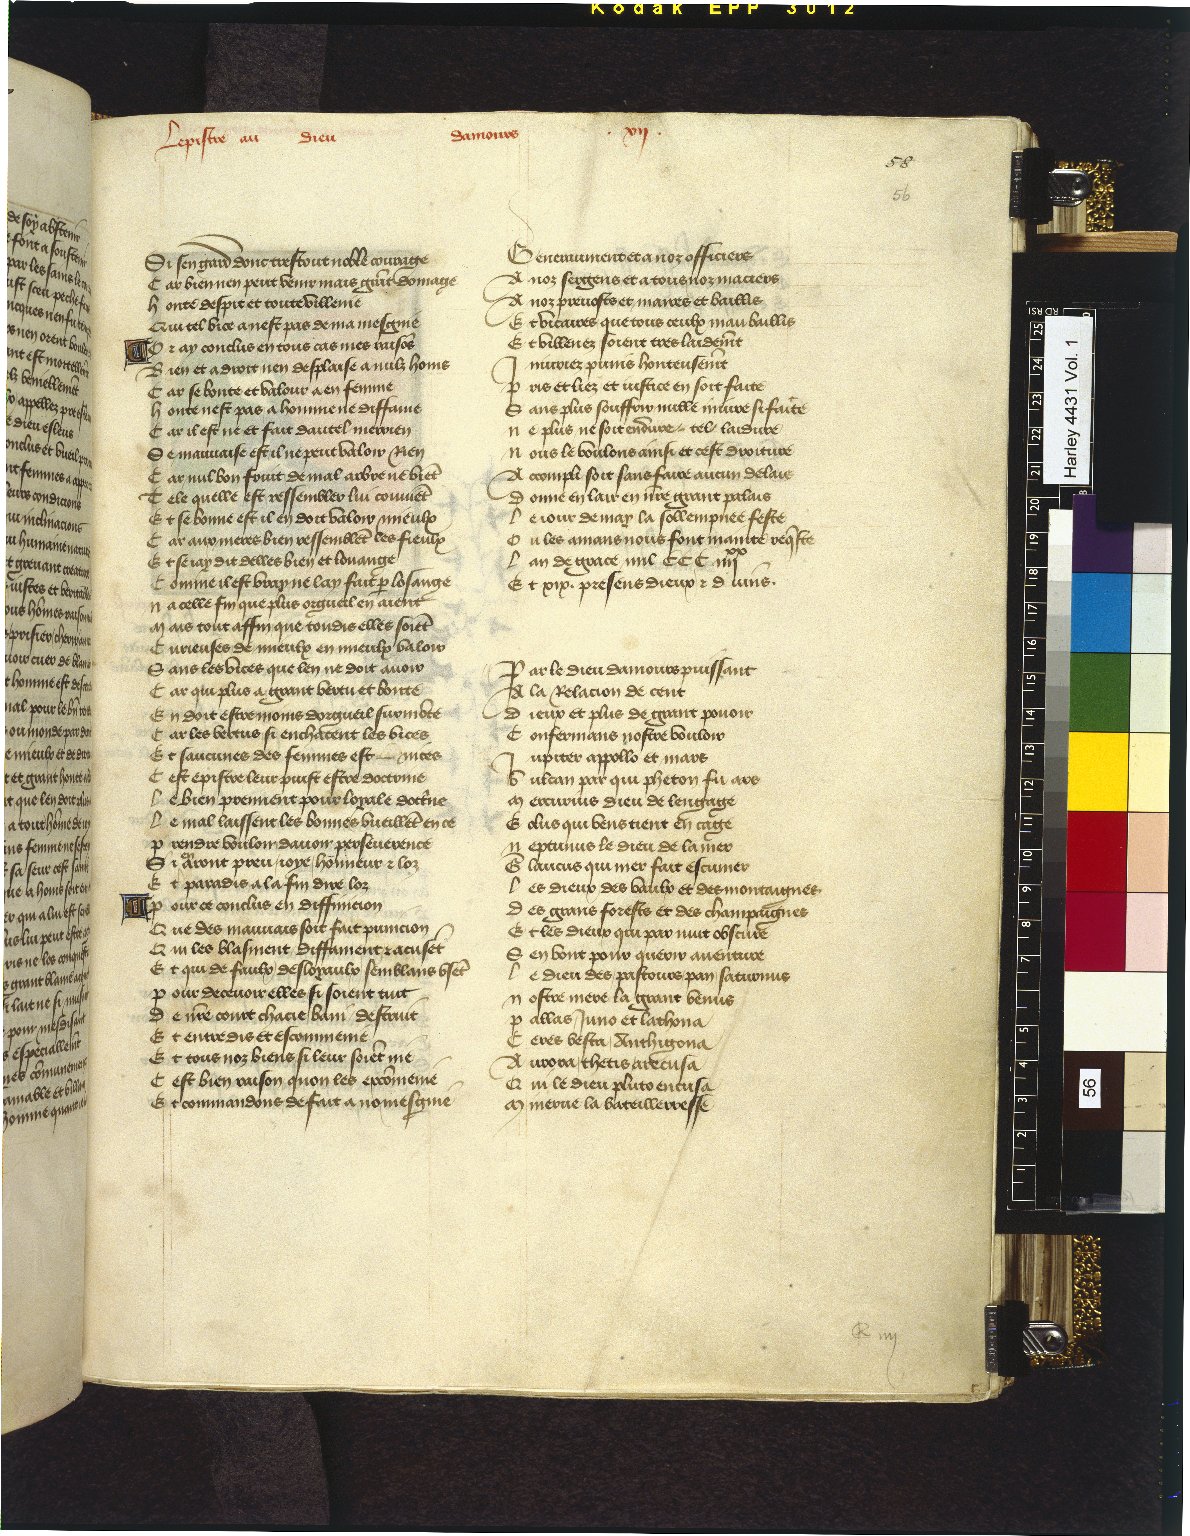 Kodak EPP 3012
Lepistre au dieu damours . xij .
58
56
Si sen gard donc trestout noble courage
Car bien nen peut venir mais grāt domage
honte despit et toute villenie
Qui tel vice a nest pas de ma mesgnie
Or ay conclus en tous cas mes raisōs
Bien et a droit nen desplaise a nulz homs
Car se bonte et valour a en femme
honte nest pas a homme ne diffame
Car il est ne et fait dautel merrien
Se mauuaise est il ne peut valoir Rien
Car nul bon fruit de mal arbre ne viēt
Tele quelle est ressembler lui couuiēt
Et se bonne est il en doit valoir mieulx
Car aux meres bien ressemblēt les fieulx
Et se iay dit delles bien et louange
Comme il est vray ne lay fait p losange
na celle fin que plus orgueil en aient
mais tout affin que toudis elles soiēt
Curieuses de mieulx en mieulx valoir
Sans les vices que len ne doit auoir
Car qui plus a grant vertu et bonte
En doit estre moins dorgueil surmōte
Car les vertus si enchacent les vices
Et saucunes des femmes est nices
Cest epistre leur puist estre doctrine
Le bien prennent pour loyale doctne
Le mal laissent les bonnes vueillēt en ce
prendre vouloir dauoir perseuerence
Si aront preu ioye honneur z loz
Et paradis a la fin dire loz
pour ce conclus en diffinicion
Que des mauuais soit fait punicion
Qui les blasment diffament z acusēt
Et qui de faulx desloyaulx semblans vsēt
pour deceuoir elles si soient tuit
De nr̄e court chacie bani destruit
Et entredis et escommenie
Et tous noz biens si leur soiēt nie
Cest bien raison quon les excōmenie
Et commandons de fait a no mesgnie
Generaument et a noz officiers
A noz sergens et a tous noz maciers
A noz preuosts et maires et baillis
Et vicaires que tous ceulx mau baillis
Et villenez soient tres laidemt
Iniuriez punis honteusemt
pris et liez et iustice en soit faite
Sans plus souffrir nulle iniure si faite
ne plus ne soit endure tel laidure
nous le voulons ainsi et cest droiture
Acompli soit sans faire aucun delaie
Donne en lair en nr̄e grant palais
Le iour de may la sollempnee feste
Ou les amans nous font mainte reqste
Lan de grace mil CCC iiii xx
Et xix. presens dieux z d iuins.
Par le dieu damours puissant
A la Relacion de cent
Dieux et plus de grant pouoir
Confermans nostre vouloir
Iupiter appollo et mars
Vulcan par qui pheton fu ars
mercurius dieu de lengage
Eolus qui vens tient en cage
neptunus le dieu de la mer
Glaucus qui mer fait escumer
Les dieux des vaulx et des montaignes
Des grans forests et des champaignes
Et les dieux qui par nuit obscure
Sen vont pour querir auenture
Le dieu des pastours pan saturnus
nostre mere la grant venus
pallas Iuno et lathona
Ceres vesta Anthigona
Aurora thetis arecusa
Qui le dieu pluto encusa
minerue la bateillerresse
R iiij
Harley 4431 Vol. 1
56